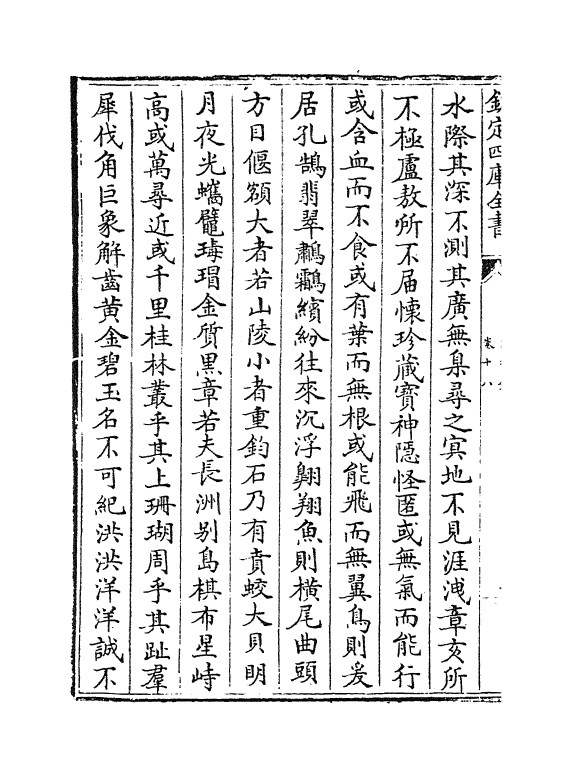 欽定四庫全書
卷十八
水際其深不測其廣無臬尋之冥地不見涯洩章亥所
不極盧敖所不届懷珍藏寶神隱怪匿或無氣而能行
或含血而不食或有葉而無根或能飛而無翼鳥則爰
居孔鵠翡翠鷫鸘繽紛往來沉浮翺翔魚則橫尾曲頭
方目偃額大者若山陵小者重鈞石乃有賁蛟大貝明
月夜光蠵鼊瑇瑁金質黒章若夫長洲别島棋布星峙
高或萬尋近或千里桂林叢乎其上珊瑚周乎其趾羣
犀伐角巨象解齒黄金碧玉名不可紀洪洪洋洋誠不